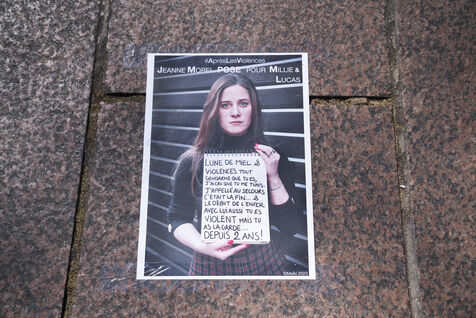 #AprèsLesViolences
Jeanne Morel POSE pour Millie &
Lucas
LUNE DE MIEL &
VIOLENCES. TOUT
GENDARME QUE TU ES,
J'AI CRU QUE TU ME TUAIS.
J'APPELLE AU SECOURS
C'ÉTAIT LA FIN... &
LE DÉBUT DE L'ENFER
AVEC LUI AUSSI TU ES
VIOLENT MAIS TU
AS LA GARDE...
DEPUIS 2 ANS!
©Melki 2023